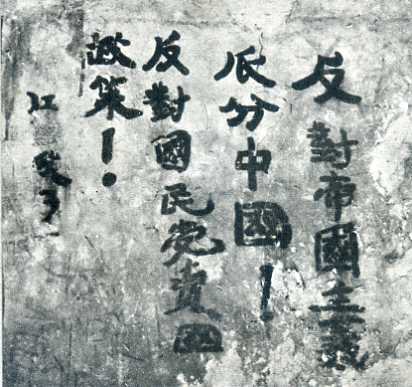 反對帝國主義
瓜分中國！
反對國民党賣国
政策！